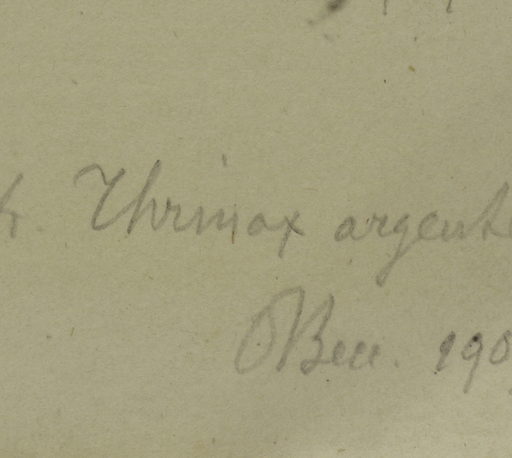 Thrinax argente
Becc. 190